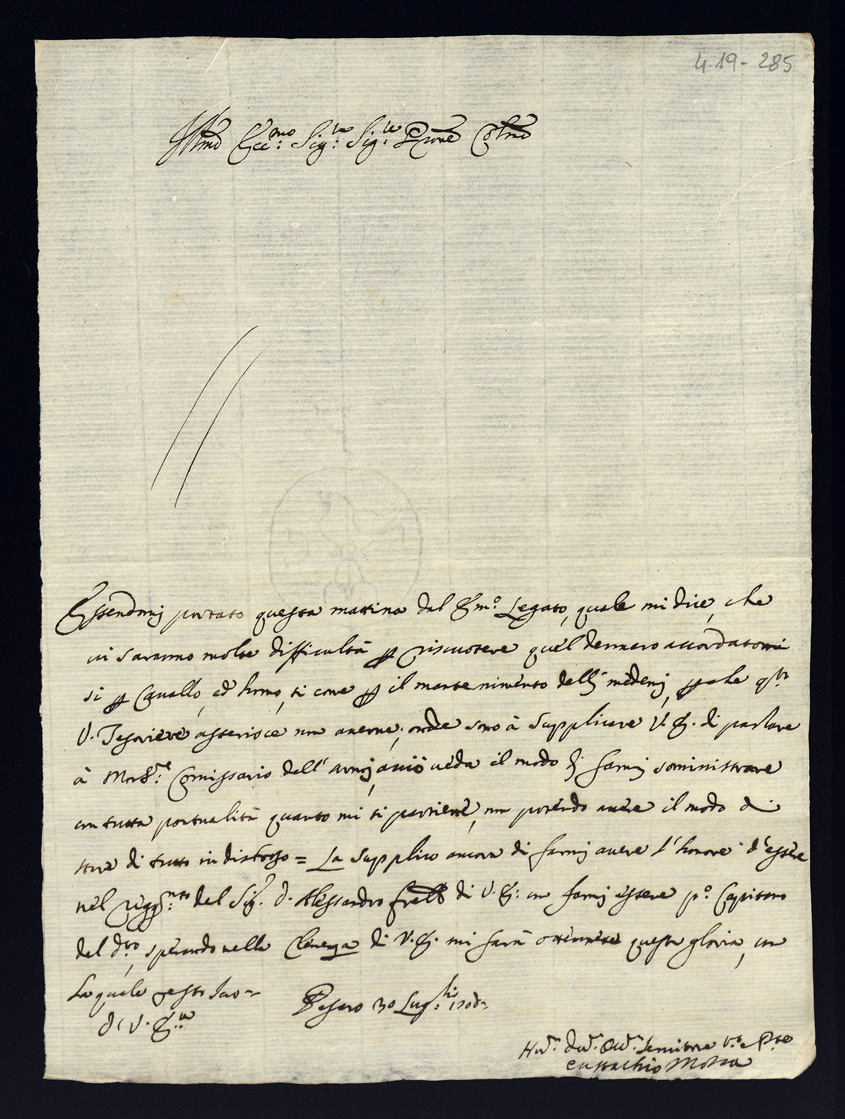 4-19-285
Ill.mo Ecc.mo Sig.re Sig.re P.rone Col.mo
Essendomj portato questa mattina dal Em.o Legato, quale mi dice, che
vi saranno molte difficultà p riscuotere quel dennaro accordatomi
si p Cavallo, ed homo, si come p il mantenimento delli medemj, p che
V. Tesoriere asserisce non averne, onde sono à Supplicare V.E. di parlare
à Mons.re Comissario dell' armj acciò veda il modo di farmj soministrare
con tutta pontualità quanto mi si partiene, non potendo avere il modo di
stare di tutto in disborso = La Supplico ancora di farmj avere l'honore d'essere
nel regg.nto del Sig.r D. Alessandro fratello di V.E. con farmj essere p.o Capitano
del d.to, sperando nella Clemenza di V.E. mi farà ottenere questa gloria, con
la quale resto
di V. E.za
Pesaro 30 Lug.lio 1708
Hu.mo Dev.mo Ob.mo Servitore
Eustachio Mosca